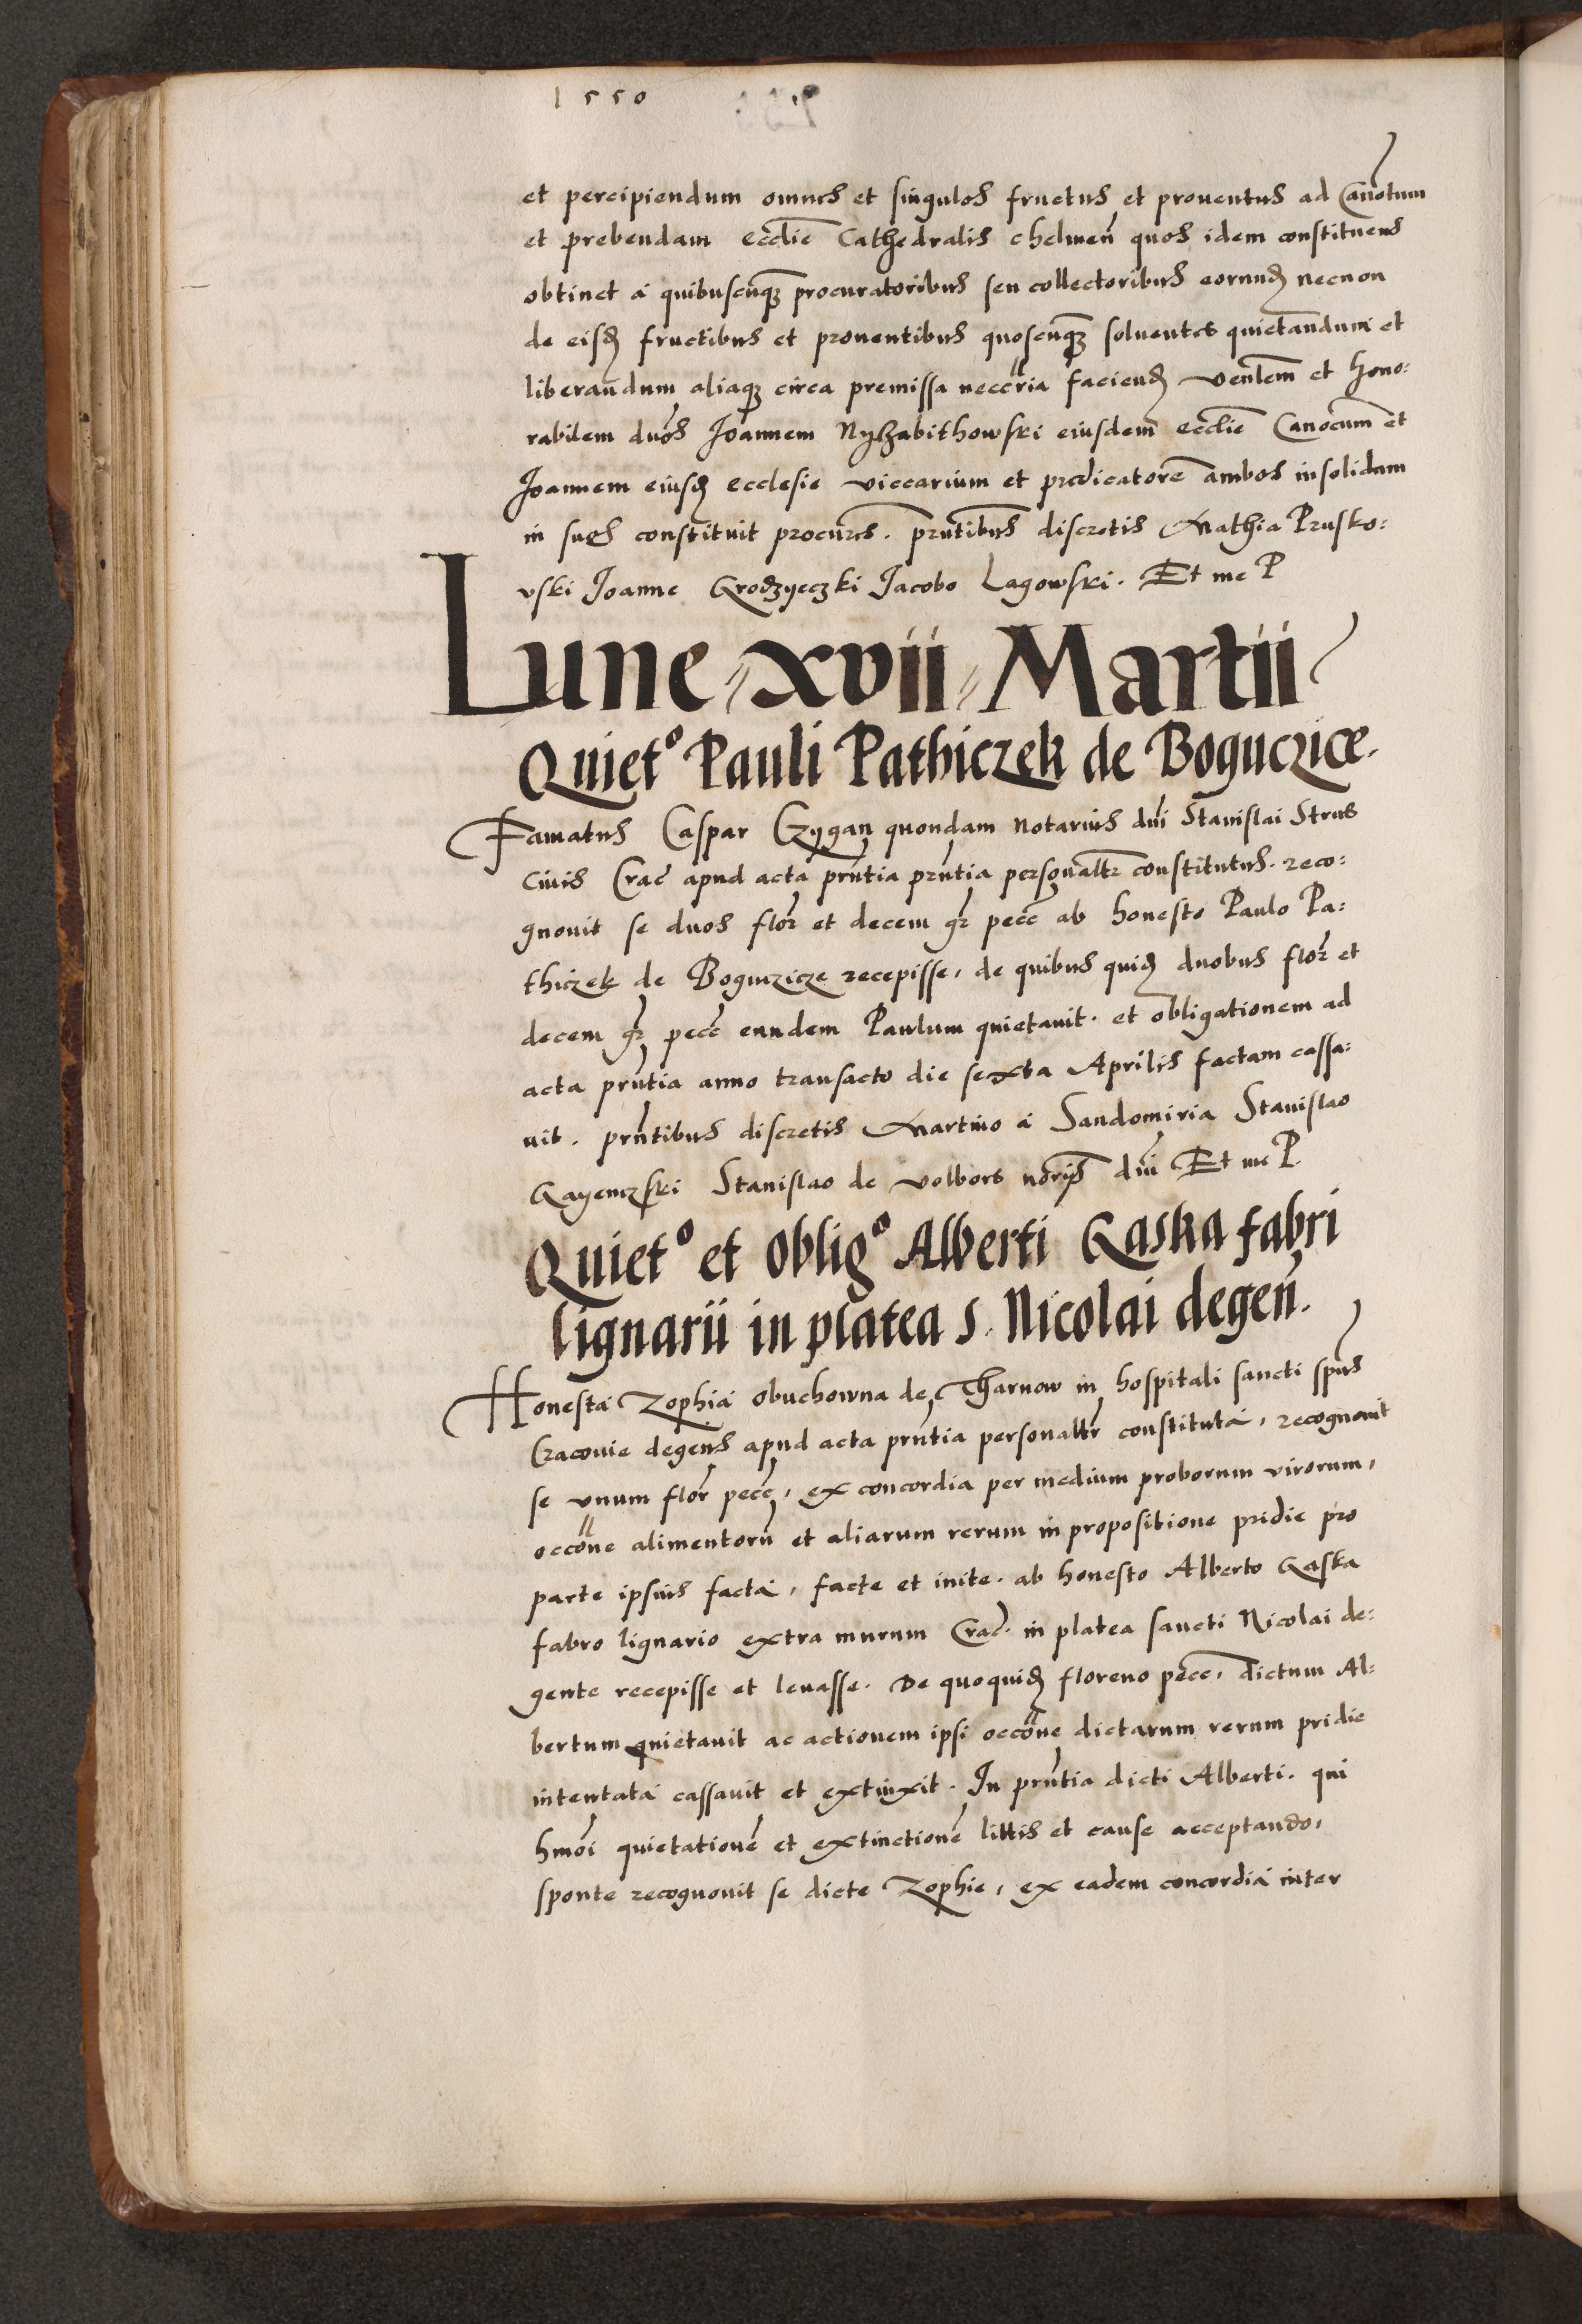 1550
et percipiendum omnes et singulos fructus et proventus ad Canotum
et prebendam eccliē Cathedralis chelmeñ quos idem constituens
obtinet a quibuscuqȝ procuratoribus seu collectoribus eorund necnon
de eisd fructibus et proventibus quoscuqȝ solventes quietandum et
liberandum aliaqȝ circa premissa neccria faciend venlem et hono:
rabilem duos Joannem Nyszabithowski eiusdem ecclie Canocum et
Joannem eiusd ecclesie viccarium et predicatorē ambos insolidum
in suos constituit procures. prntibus discretis Mathia Prusko:
vski Joanne Grodzyeczki Jacobo Lagowski. Et me P
Lune xvii Martii
Quietº Pauli Pathiczek de Boguczice.
Famatus Caspar Czygan quondam notarius dni Stanislai Strus
civis Crac apud acta prntia prntia personaltr constitutus. reco:
gnovit se duos flor et decem gr pecc ab honesto Paulo Pa:
thiczek de Boguczicze recepisse, de quibus quid duobus flor et
decem gr pecc eundem Paulum quietavit. et obligationem ad
acta prntia anno transacto die sexta Aprilis factam cassa:
vit. prntibus discretis Martino a Sandomiria Stanislao
Gayenczski Stanislao de volbors noriis dni Et me P.
Quietº et obligº Alberti Gaska fabri
lignarii in platea S. Nicolai degeñ.
Honesta Zophia obuchowna de Tharnow in hospitali sancti spus
Cracovie degens apud acta prntia personaltr constituta, recognovit
se unum flor pecc, ex concordia per medium proborum virorum,
occone alimentorū et aliarum rerum in propositione pridie pro
parte ipsius facta, facte et inite. ab honesto Alberto Gaska
fabro lignario extra murum Crac. in platea sancti Nicolai de:
gente recepisse et levasse. De quoquid floreno pecc, dictum Al:
bertum quietavit ac actionem ipsi occone dictarum rerum pridie
intentata cassavit et extinxit. In prntia dicti Alberti. qui
hmoi quietationē et extinctionē littis et cause acceptando,
sponte recognovit se dicte Zophie, ex eadem concordia inter